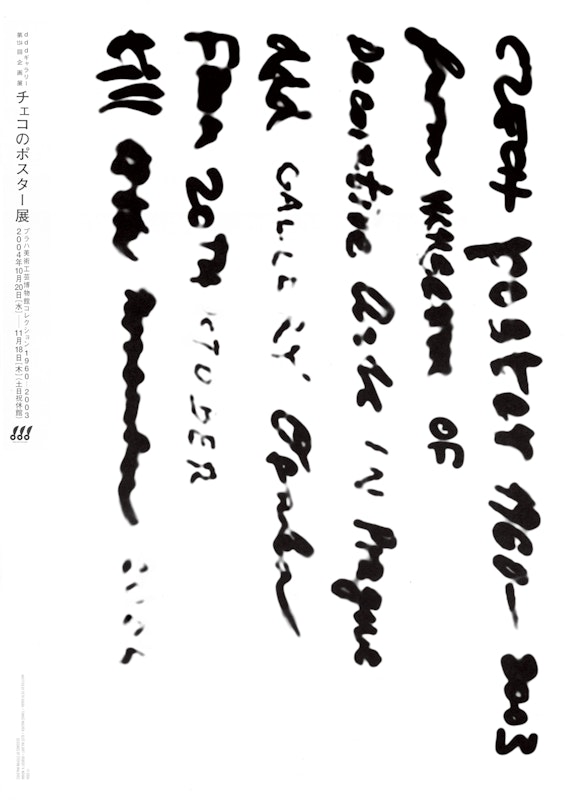 CZECH poster 1960–2003
from MUSEUM OF
Decorative Arts IN Prague
ddd GALLERY Osaka
From 20TH OCTOBER
till 18th november 2004
dddギャラリー
第134回企画展
チェコのポスター展
プラハ美術工芸博物館コレクション1960-2003
2004年10月20日[水]—11月18日[木][土日祝休館]